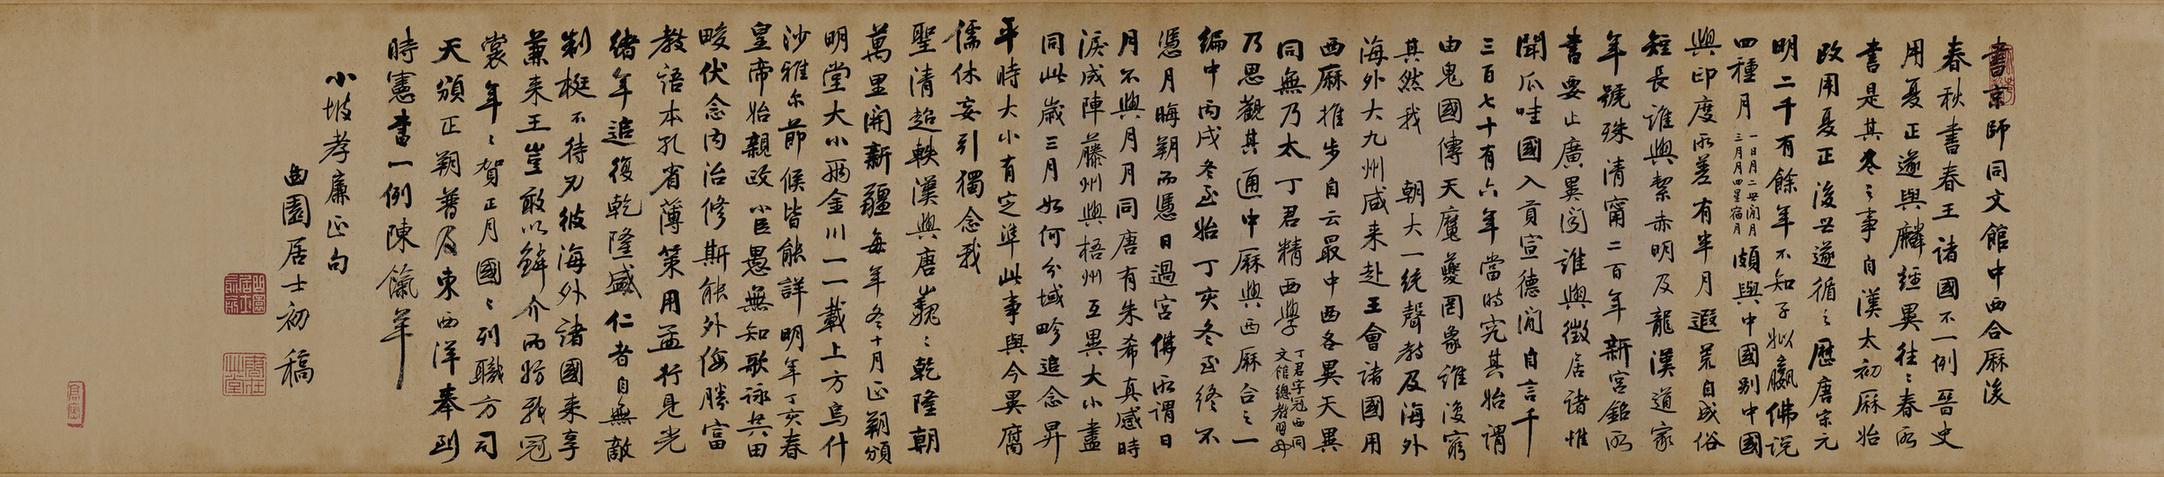 書京師同文館中西合厤後
春秋書春王諸國不一例晉史
用夏正遂與麟經異往〻春秋
書是其冬之事自漢太初厤始
改用夏正後世遂循之歷唐宋元
明二千有餘年不知子姒嬴佛說
四種月一日月二世間月三月月四星宿月頗與中國別中國
與印度所差有半月遐荒自成俗
短長誰與絜赤明及龍漢道家
年號殊清甯二百年新宮銘所
書要止廣異聞誰與徵居諸惟
聞爪哇國入貢宣德間自言千
三百七十有六年當時究其始謂
由鬼國傳天魔夔罔象誰復窮
其然我朝大一統聲教及海外
海外大九州咸来赴王會諸國用
西厤推步自云最中西各異天異
同無乃太丁君精西學丁君字冠西同文館總教習
乃思觀其通中厤與西厤合之一
編中丙戌冬至始丁亥冬至終不
憑月晦朔而憑日過宮佛所謂日
月不與月月同唐有朱希真感時
淚成陣藤州與梧州互異大小盡
同此歲三月如何分域畛追念昇
平時大小有定準此事與今異腐
儒休妄引獨念我
聖清超軼漢與唐巍〻乾隆朝
萬里開新疆每年冬十月正朔頒
明堂大小兩金川一一載上方烏什
沙雅尔節候皆能詳明年丁亥春
皇帝始親政小臣愚無知歌詠兵田
畯伏念內治修斯能外侮勝富
教語本孔省薄策用孟行見光
緒年追復乾隆盛仁者自無敵
制梃不待刃彼海外諸國来享
兼来王豈敢以鱗介而妨我冠
裳年〻賀正月國〻列職方司
天頒正朔普及東西洋奉到
時憲書一例陳餼羊
小坡孝廉正句
曲園居士初稿